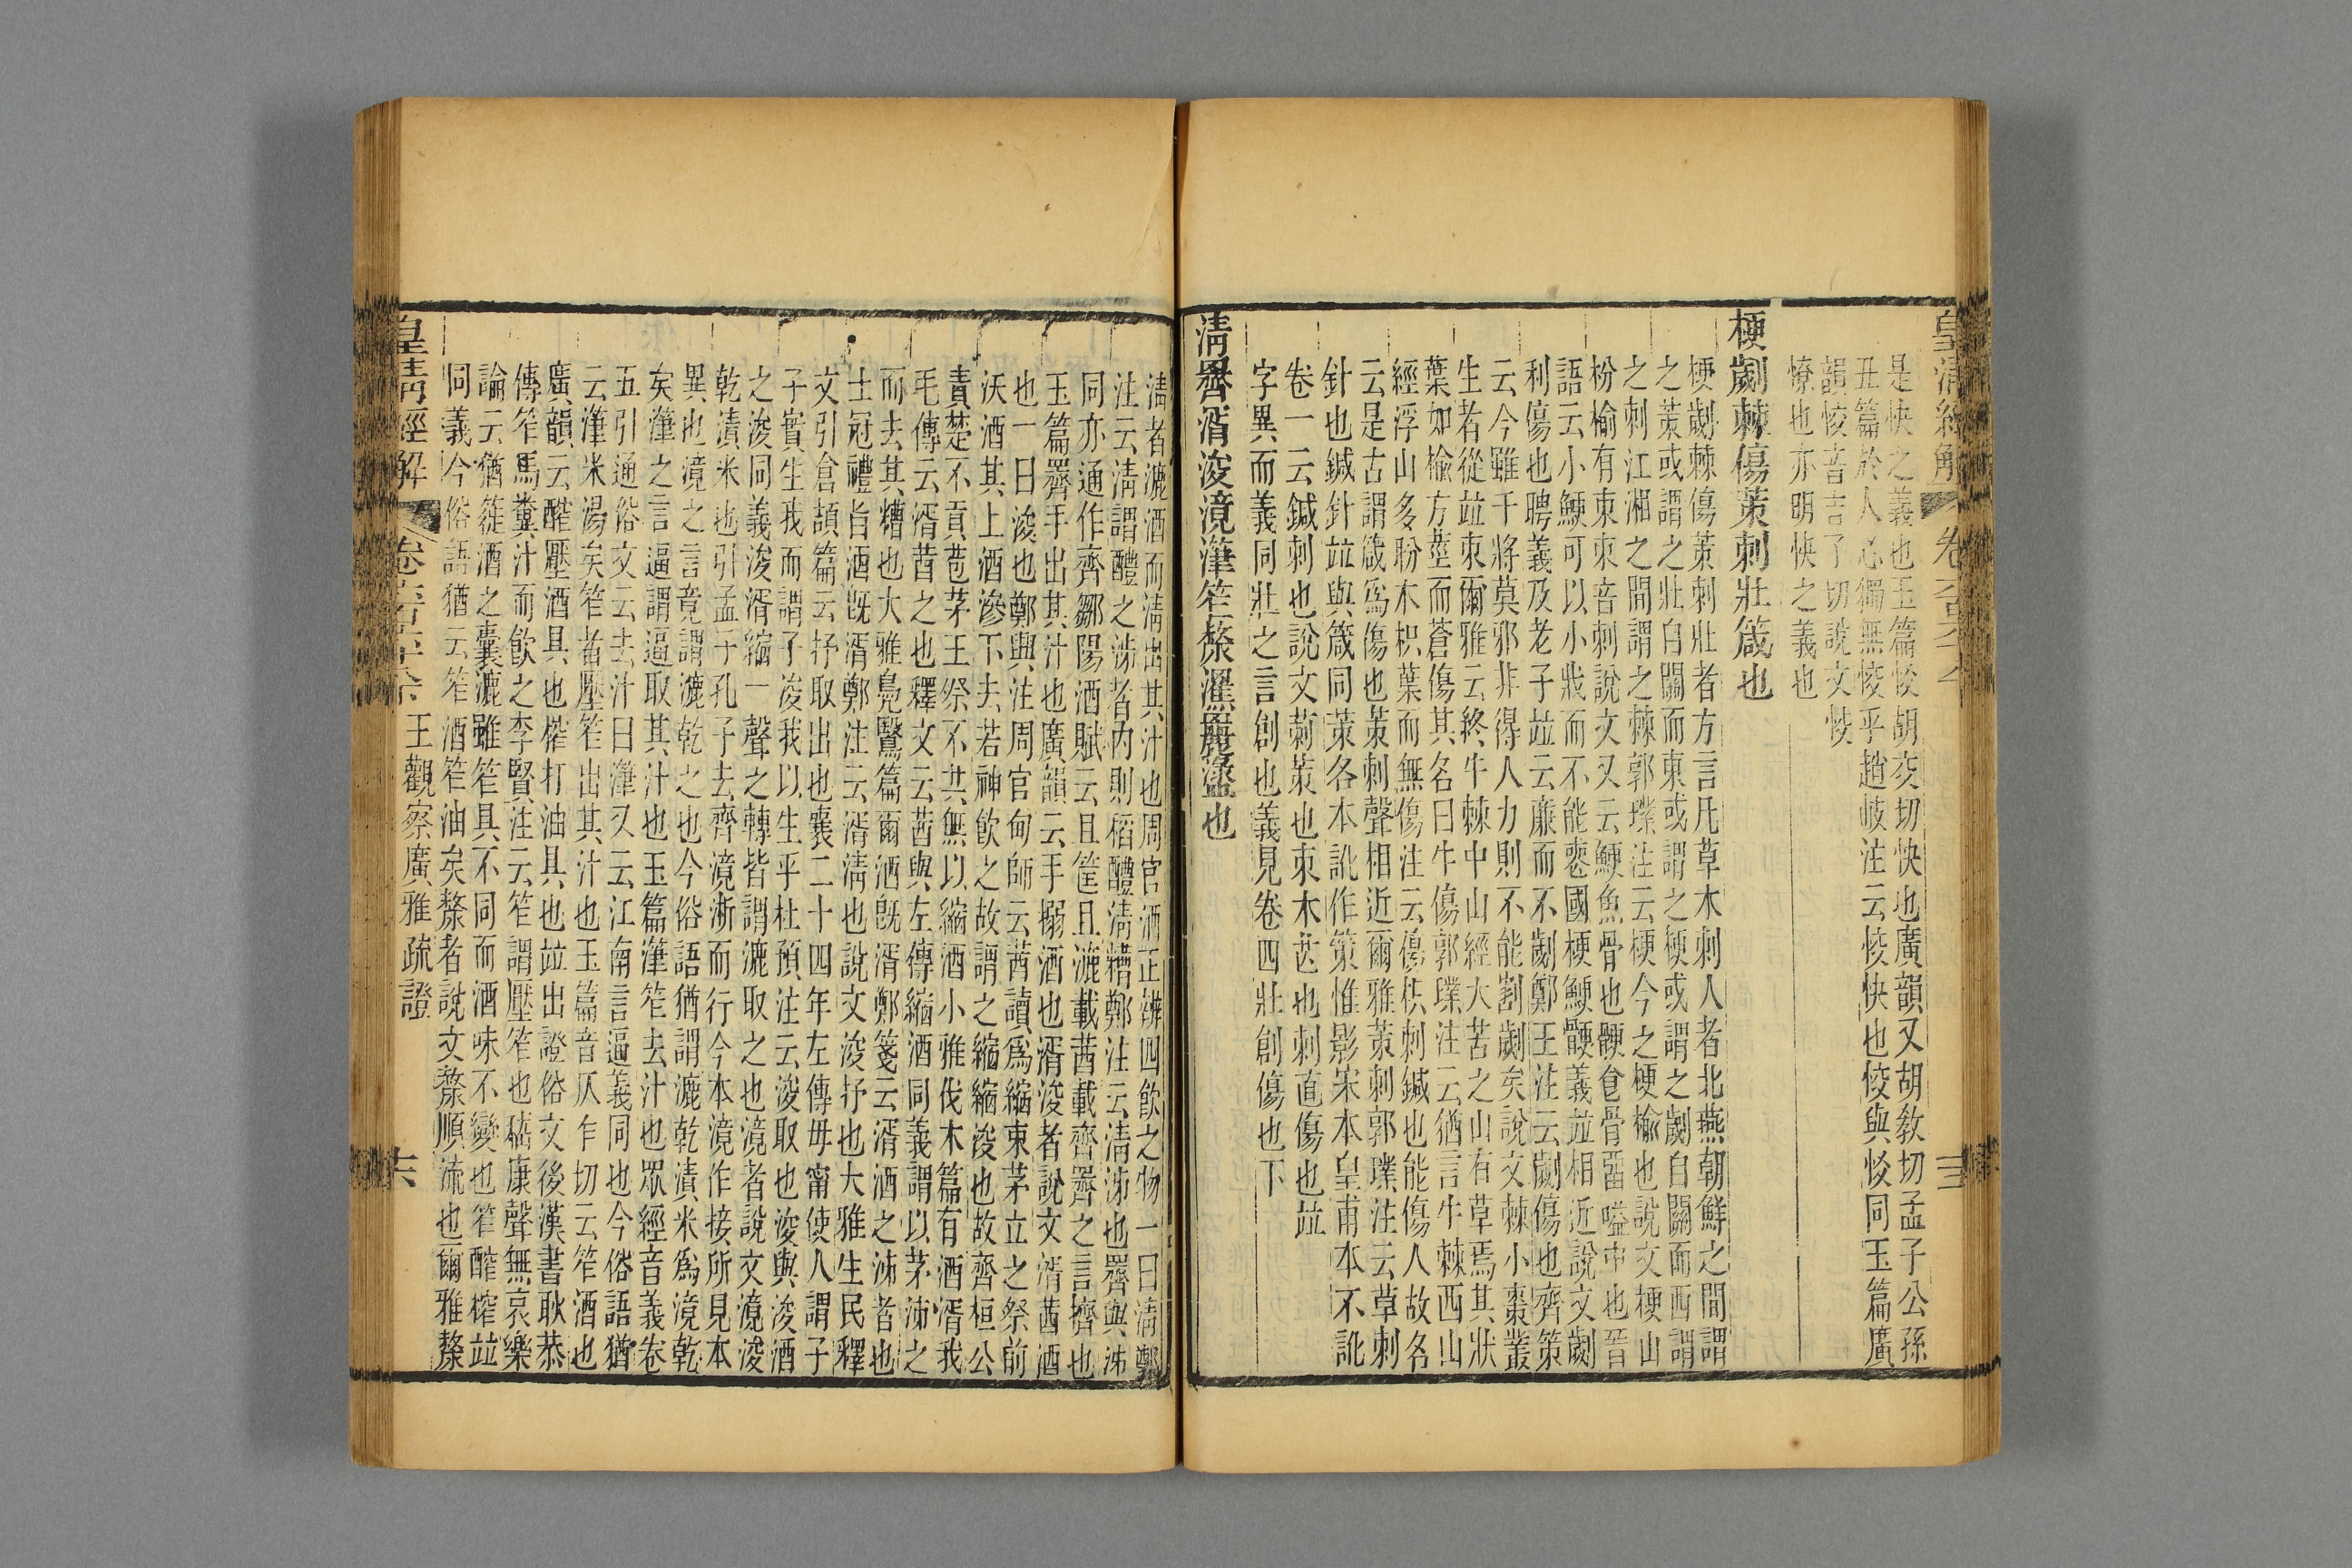 皇清經解 卷六百
是快之義也玉篇恔胡交切快也廣韻又胡敎切孟子公孫
丑篇於人心獨無恔乎趙岐注云恔快也恔與恔同玉篇廣
韻恔音吉了切說文恔
憭也亦明快之義也
梗劌棘傷茦刺壯箴也
梗劌棘傷茦刺壯者方言凡草木刺人者北燕朝鮮之間謂
之茦或謂之壯自關而東或謂之梗或謂之劌自關而西謂
之刺江湘之間謂之棘郭璞注云梗今之梗榆也說文梗山
枌榆有朿朿音刺說文又云鯁魚骨也骾食骨畱嗌中也晉
語云小鯁可以小戕而不能喪國梗鯁骾義竝相近說文劌
利傷也聘義及老子竝云廉而不劌鄭王注云劌傷也齊策
云今雖干將莫邪非得人力則不能割劌矣說文棘小棗叢
生者從竝朿爾雅云終牛棘中山經大苦之山有草焉其狀
葉如榆方莖而蒼傷其名曰牛傷郭璞注云猶言牛棘西山
經浮山多盼木枳葉而無傷注云傷棋刺鍼也能傷人故名
云是古謂箴爲傷也茦刺聲相近爾雅茦刺郭璞注云草刺
針也鍼針竝與箴同茦各本訛作策惟影宋本皇甫本不訛
卷一云鍼刺也說文莿茦也朿木芒也刺直傷也竝
字異而義同壯之言創也義見卷四壯創傷也下
淸𢍏湑浚滰潷笮漀𣻳漉盝也
淸者漉酒而淸出其汁也周官酒正辨四飮之物一曰淸鄭
注云淸謂醴之泲者內則稻醴淸糟鄭注云淸泲也𢍏與泲
同亦通作齊鄒陽酒賦云且筐且漉載茜載齊𢍏之言擠也
玉篇𢍏手出其汁也廣韻云手搦酒也湑浚者說文湑茜酒
也一曰浚也鄭興注周官甸師云茜讀爲縮束茅立之祭前
沃酒其上酒滲下去若神飮之故謂之縮縮浚也故齊桓公
責楚不貢苞茅王祭不共無以縮酒小雅伐木篇有酒湑我
毛傳云湑茜之也釋文云茜與左傳縮酒同義謂以茅泲之
而去其糟也大雅鳧鷖篇爾酒旣湑鄭箋云湑酒之泲者也
士冠禮旨酒旣湑鄭注云湑淸也說文浚抒也大雅生民釋
文引倉頡篇云抒取出也襄二十四年左傳毋甯使人謂子
子實生我而謂子浚我以生乎杜預注云浚取也浚與浚酒
之浚同義浚湑縮一聲之轉皆謂漉取之也滰者說文滰浚
乾漬米也引孟子孔子去齊滰淅而行今本滰作接所見本
異也滰之言竟謂漉乾之也今俗語猶謂漉乾漬米爲滰乾
矣潷之言逼謂逼取其汁也玉篇潷笮去汁也眾經音義卷
五引通俗文云去汁曰潷又云江南言逼義同也今俗語猶
云潷米湯矣笮者壓笮出其汁也玉篇音仄乍切云笮酒也
廣韻云醡壓酒具也榨打油具也竝出證俗文後漢書耿恭
傳笮馬糞汁而飮之李賢注云笮謂壓笮也嵇康聲無哀樂
論云猶簁酒之囊漉雖笮具不同而酒味不變也笮醡榨竝
同義今俗語猶云笮酒笮油矣漀者說文漀順流也爾雅漀
皇淸經解 王觀察廣雅疏證